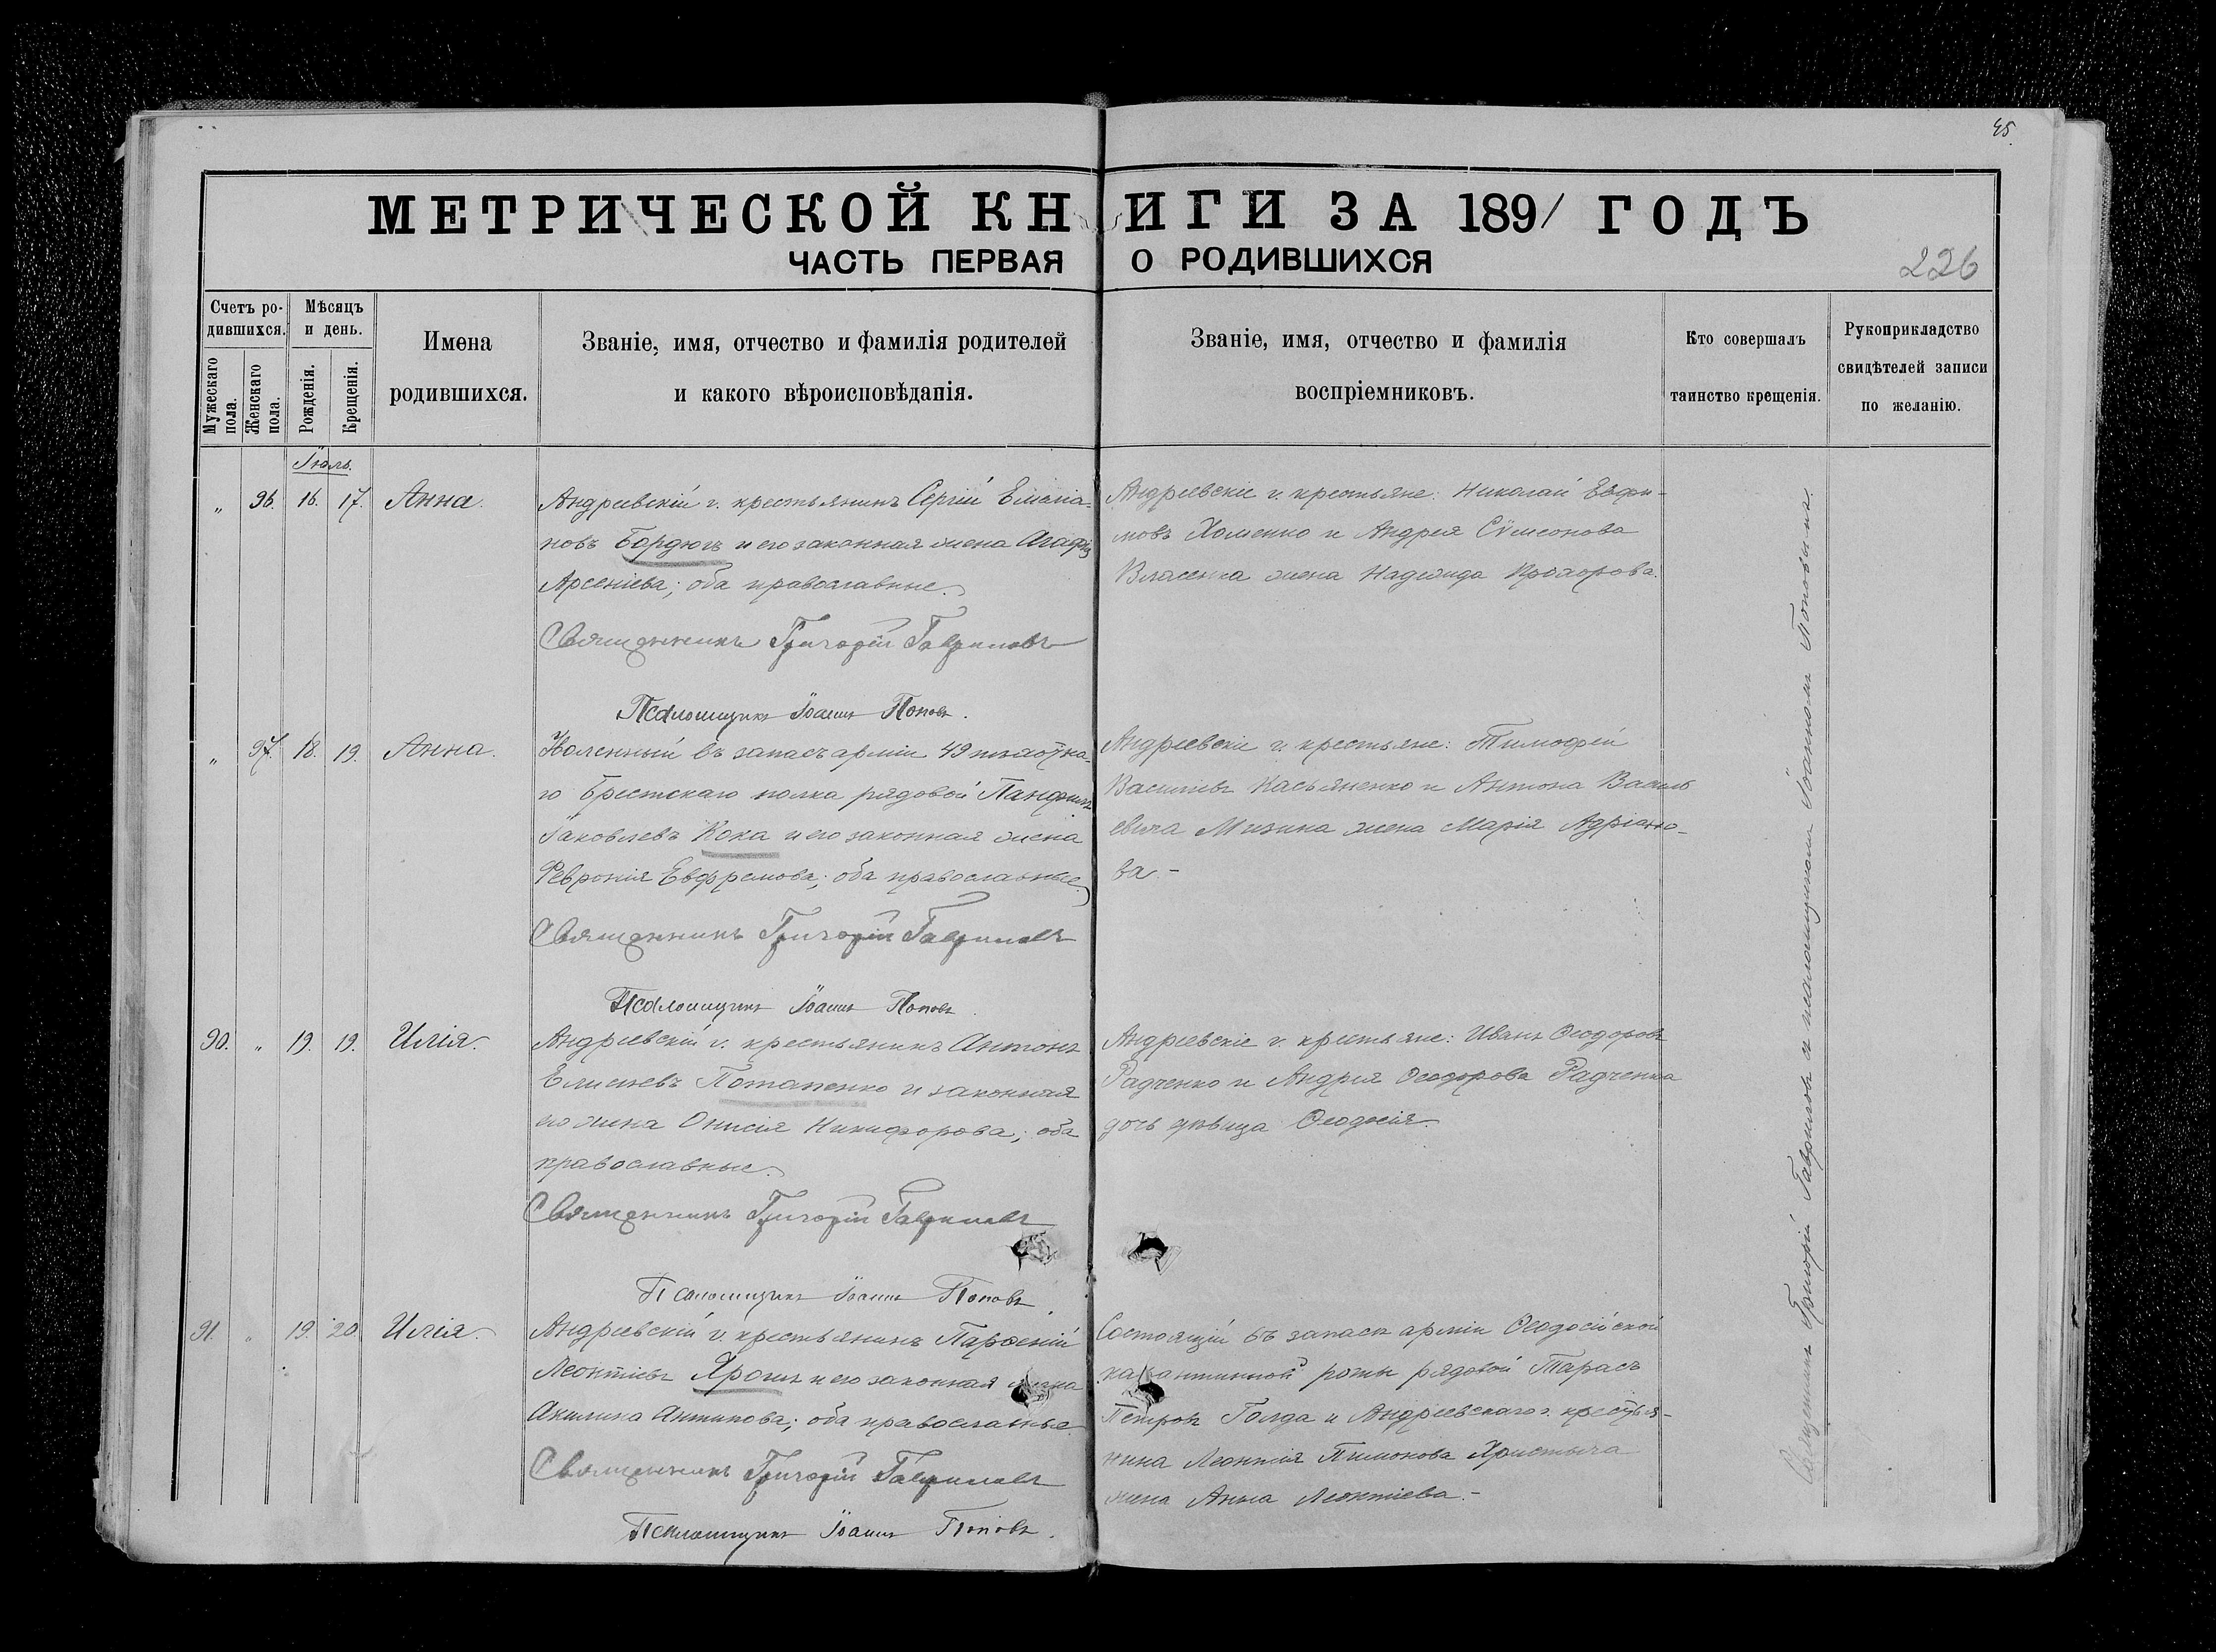 45.
МЕТРИЧЕСКОЙ КНИГИ ЗА 1891 ГОДЪ
ЧАСТЬ ПЕРВАЯ О РОДИВШИХСЯ
226
Счетъ ро-
дившихся.
Мужескаго пола.
Женскаго пола.
Мѣсяцъ
и день.
Рожденія.
Крещенія.
Имена
родившихся.
Званіе, имя, отчество и фамилія родителей
и какого вѣроисповѣданія.
Званіе, имя, отчество и фамилія
воспріемниковъ.
Кто совершалъ
таинство крещенія.
Рукоприкладство
свидѣтелей записи
по желанію.
Іюль.
" 96. 16. 17. Анна.
Андреевскій г. крестьянинъ Сергій Емелiа-
новъ Бордюгъ и его законная жена Агафія
Арсеніева; оба православные.
Священникъ Григорій Гавриловъ
Псаломщикъ Іоаннъ Поповъ.
Андреевскіе г. крестьяне: Николай Евфи-
мовъ Хоменко и Андрея Сѵмеонова
Власенка жена Надежда Прохорова.
" 97. 18. 19. Анна.
въ запасъ арміи 49 пѣхотна-
го Брестскаго полка рядовой Панфилъ
Іаковлевъ Кока и его законная жена
Феѵронія Евфремова; оба православные.
Священникъ Григорій Гавриловъ
Псаломщикъ Іоаннъ Поповъ.
Андреевскіе г. крестьяне: Тимофей
Василіевъ Касьяненко и Антона Василь
евича Мизина жена Марія Адріано-
ва.-
90. " 19. 19. Илія.
Андреевскій г. крестьянинъ Антонъ
Елисеевъ Потапенко и законная
его жена Онисія Никифорова; оба
православные.
Священникъ Григорій Гавриловъ
Псаломщикъ Іоаннъ Поповъ.
Андреевскіе г. крестьяне: Иванъ Ѳеодоровъ
Радченко и Андрея Ѳеодорова Радченка
дочь дѣвица Ѳеодосія.
91. " 19. 20. Илія.
Андреевскій г. крестьянинъ Парѳеній
Леонтіевъ Ярошъ и его законная жена
Акилина Антипова; оба православные.
Священникъ Григорій Гавриловъ
Псаломщикъ Іоаннъ Поповъ.
Состоящій въ запасѣ арміи Ѳеодосійской
карантинной роты рядовой Тарасъ
Петровъ Голда и Андреевскаго г. крестья-
нина Леонтія Пимонова
жена Анна Леонтіева.-
Священникъ Григорій Гавриловъ и псаломщикомъ Іоанномъ Поповымъ.